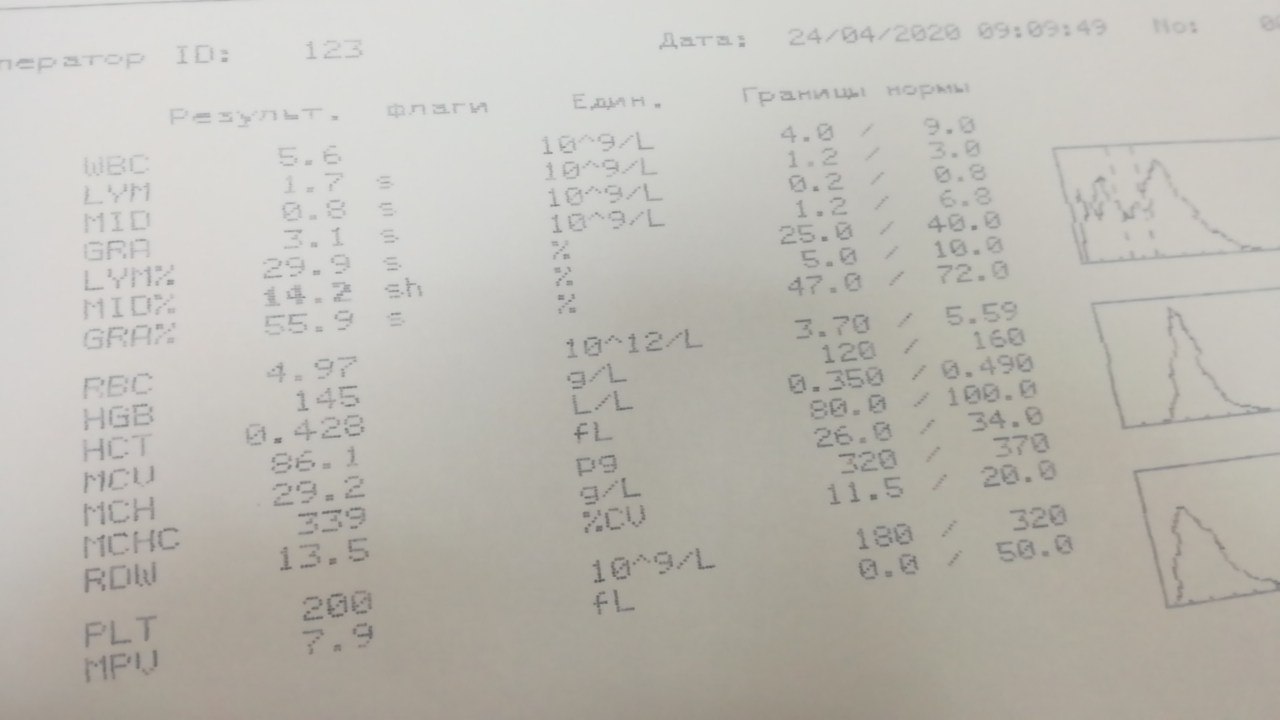 ператор ID: 123 Дата: 24/04/2020 09:09:49 No: 0
Результ. Флаги Един. Границы нормы
WBC 5.6 10^9/L 4.0 / 9.0
LYM 1.7 s 10^9/L 1.2 / 3.0
MID 0.8 s 10^9/L 0.2 / 0.8
GRA 3.1 s 10^9/L 1.2 / 6.8
LYM% 29.9 s % 25.0 / 40.0
MID% 14.2 sh % 5.0 / 10.0
GRA% 55.9 s % 47.0 / 72.0
RBC 4.97 10^12/L 3.70 / 5.59
HGB 145 g/L 120 / 160
HCT 0.428 L/L 0.350 / 0.490
MCV 86.1 fL 80.0 / 100.0
MCH 29.2 pg 26.0 / 34.0
MCHC 339 g/L 320 / 370
RDW 13.5 %CV 11.5 / 20.0
PLT 200 10^9/L 180 / 320
MPV 7.9 fL 0.0 / 50.0